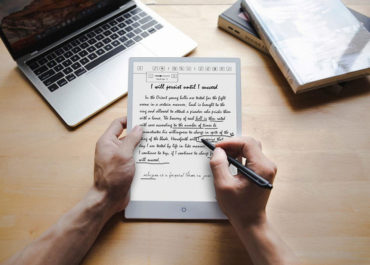 I will persist until I succeed
In the Orient young bulls are tested for the fight
arena in a certain manner. Each is brought to the
ring and allowed to attack a picador who pricks them
with a lance. The bravery of each bull is then rated
with care according to the number of times he
demonstrates his willingness to charge in spite of the
sting of the blade. Henceforth will I recognize that
day I am tested by life in like manner.
I continue to try, if I continue to charge
will succeed.